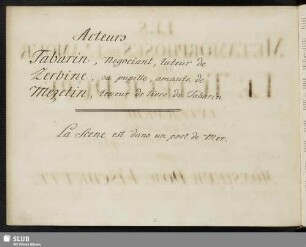 Acteurs
Tabarin, negociant, tuteur de
Zerbine, sa pupille, amante de
Mezetin, teneur de livre de Tabarin
La Scene est dans un port de Mer.
SLUB
Wir führen Wissen.